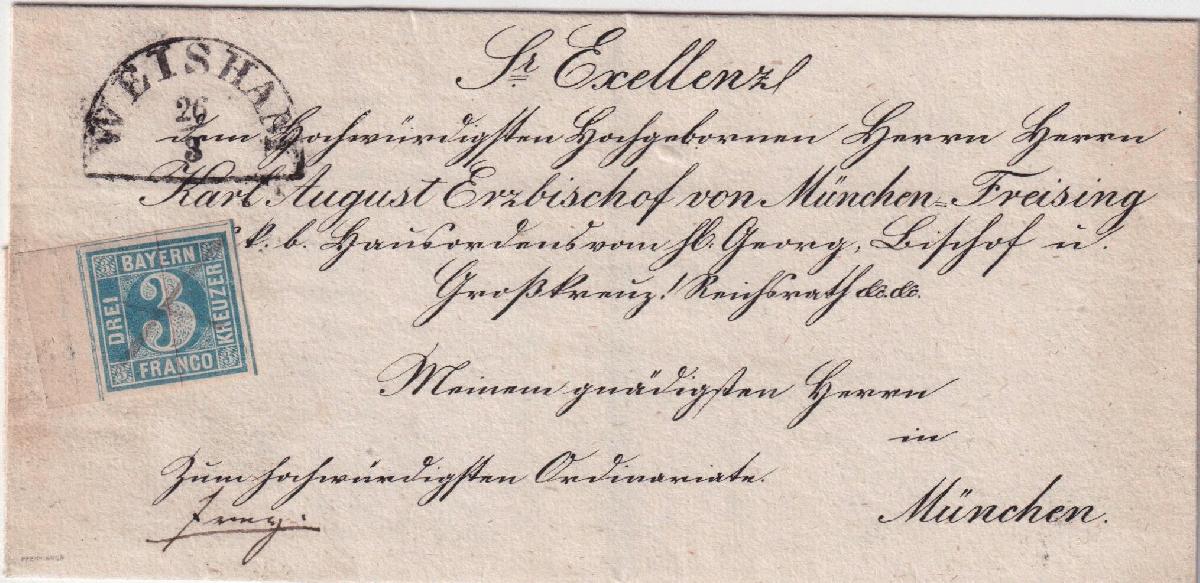 WEISHAM
26
3
Sr. Exellenz
dem Hochwürdigsten Hochgebornen Herrn Herrn
Karl August Erzbischof von München-Freising
k. b. Hausordens vom hl. Georg, Bischof u.
Großkreuz! Reichsrath &c. &c.
BAYERN
DREI
3
KREUZER
FRANCO
Meinem gnädigsten Herrn
in
Zum hochwürdigsten Ordinariate.
München.